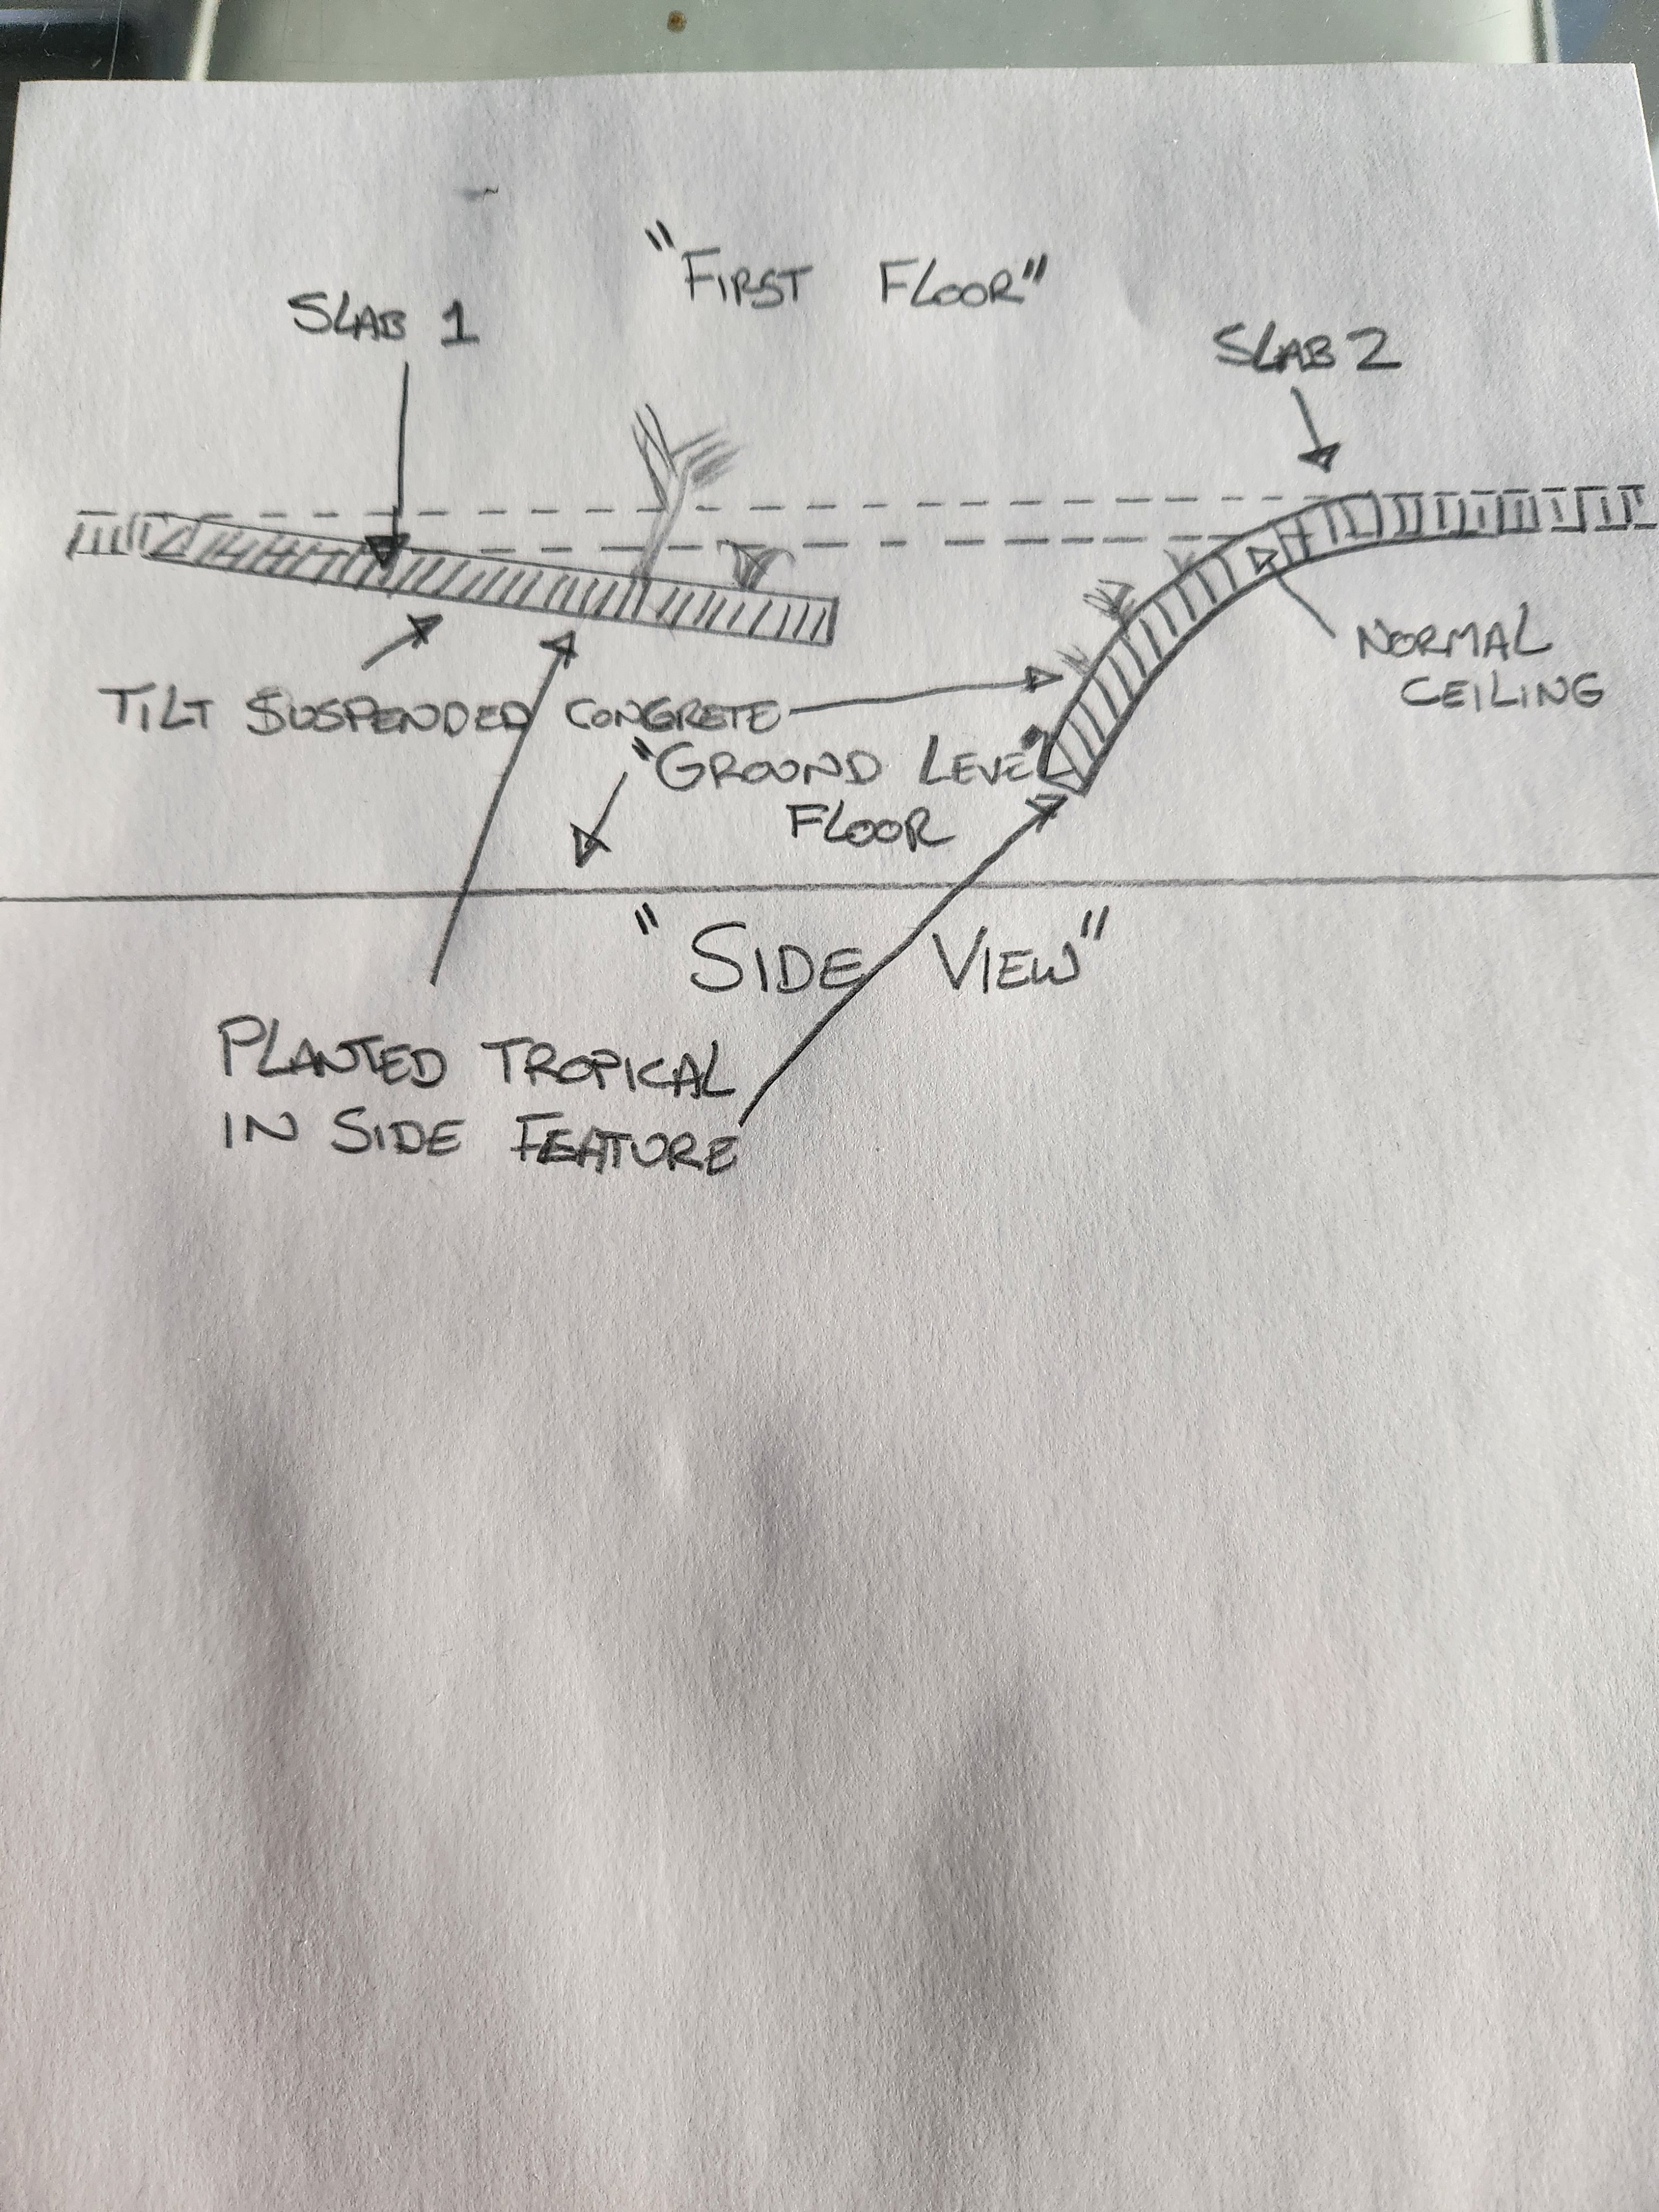 "FIRST FLOOR"
SLAB 1
SLAB 2
NORMAL
CEILING
TILT SUSPENDED CONGRETE
"GROUND LEVEL"
FLOOR
"SIDE VIEW"
PLANTED TROPICAL
IN SIDE FEATURE